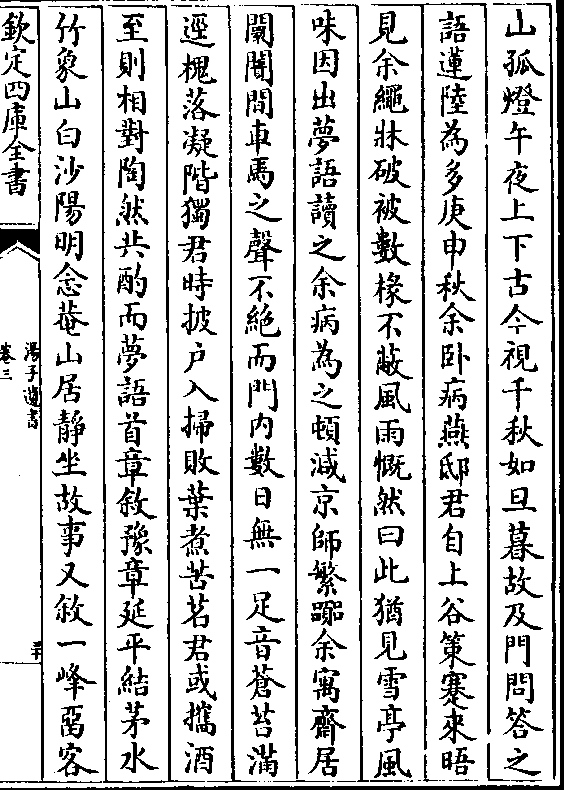 山孤燈午夜上下古今視千秋如旦暮故及門問答之
語蓮陸為多庚申秋余卧病燕邸君自上谷策蹇來晤
見余繩牀破被數椽不蔽風雨慨然曰此猶見雪亭風
味因出夢語讀之余病為之頓減京師繁囂余寓齋居
闤闠間車馬之聲不絶而門内數日無一足音蒼苔滿
逕槐落凝階獨君時披户入掃敗葉煮苦茗君或攜酒
至則相對陶然共酌而夢語首章敘豫章延平結茅水
竹象山白沙陽明念菴山居靜坐故事又敘一峰罶客
欽定四庫全書
湯子遺書
卷三